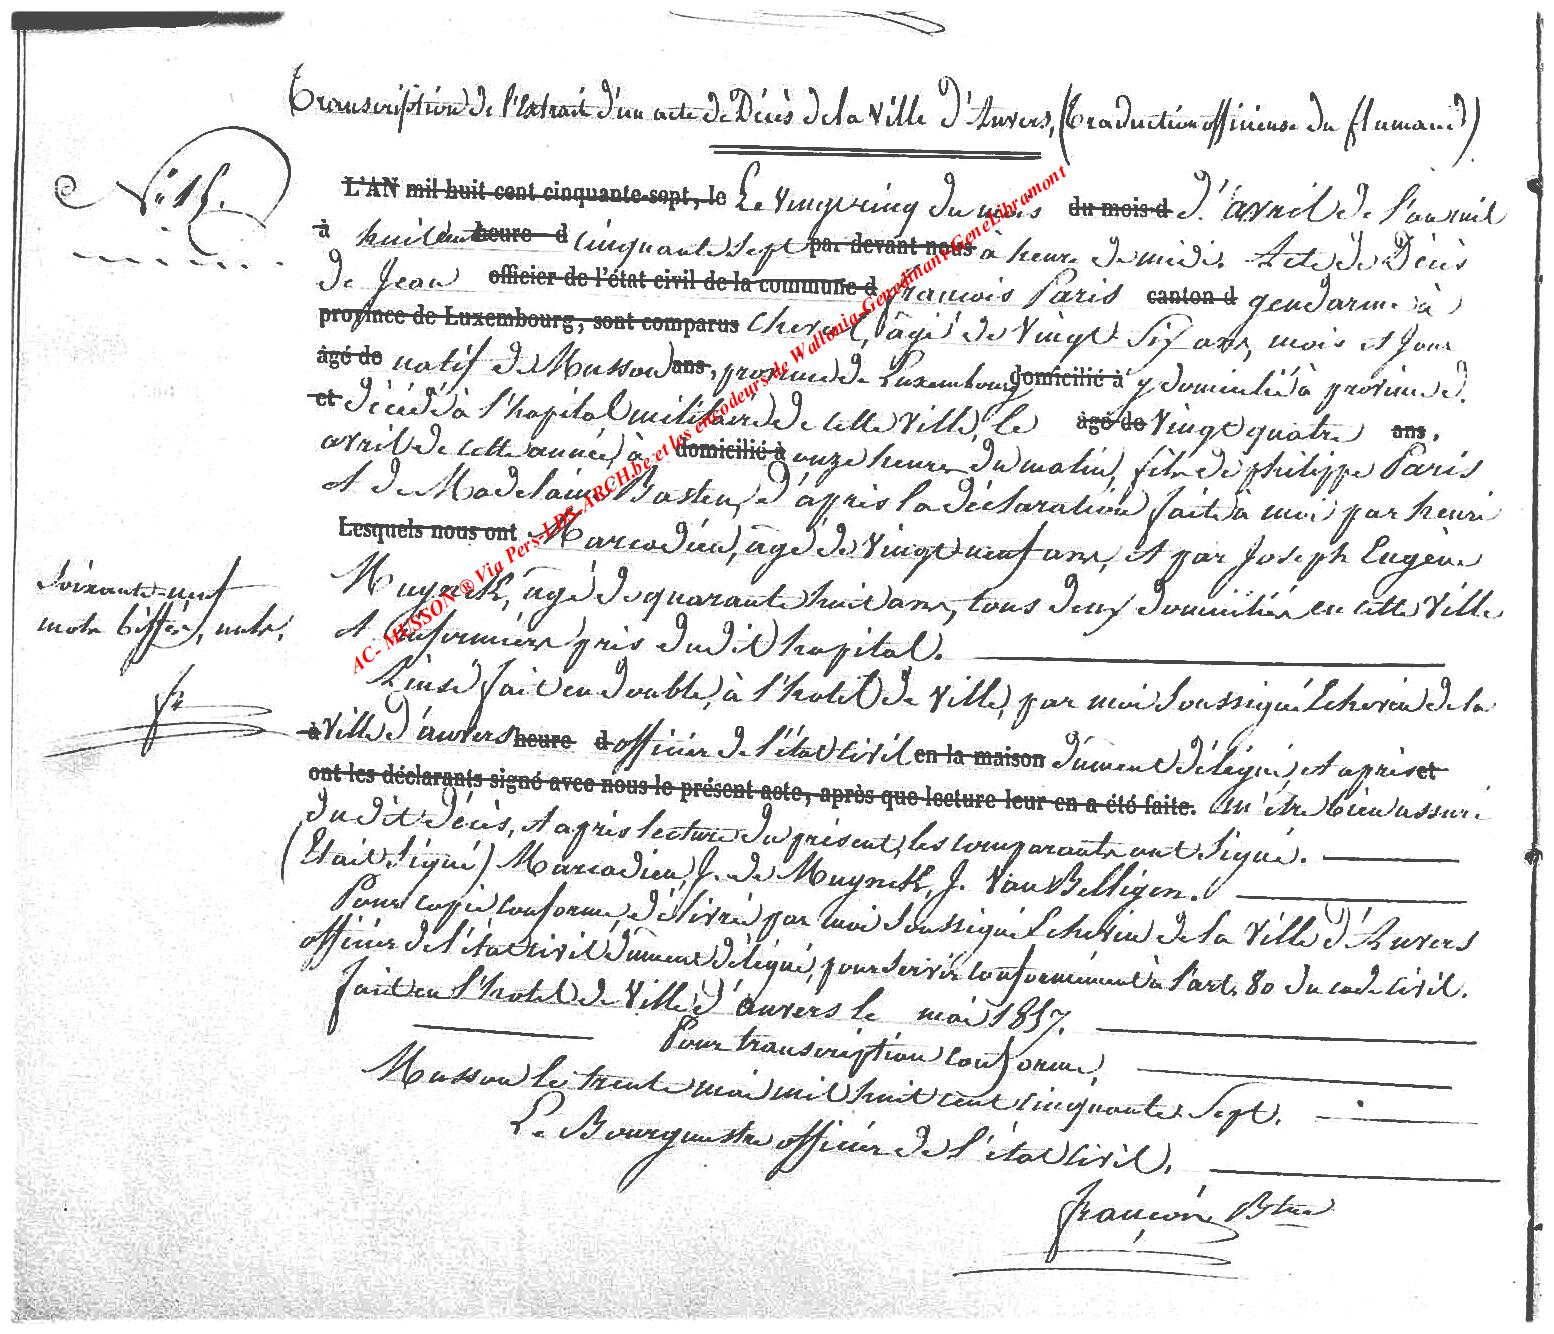 Transcription de l'Extrait d'un acte de Décès de la Ville d'Anvers, (Traduction officieuse du flamand)
N° 15.
L'AN mil huit cent cinquante-sept, le Le vingt cinq du mois du mois d d'avril de l'an mil
à huit cent heure d cinquante sept par devant nous à heure de midi. Acte de Décès
de Jean officier de l'état civil de la commune d françois Paris canton d gendarme à
province de Luxembourg, sont comparus cheval, âgé de vingt six ans, mois et jour
âgé de natif de Musson ans, province de Luxembourg domicilié à y domicilié à province d.
et décédé à l'hopital militaire de cette ville, le âgé de vingt quatre ans.
avril de cette année, à domicilié à onze heures du matin, fils de philippe Paris
et de Madelaine Basten, d'après la déclaration faite à moi par henri
Lesquels nous ont Marcadieu, âgé de vingt neuf ans, et par Joseph Eugène
Muynck, âgé de quarante huit ans, tous deux domiciliés en cette ville
et infirmiers près du dit hopital.
Soixante-neuf
mots biffés, nuls.
fr
Ainsi fait en double, à l'hotel de Ville, par moi soussigné Echevin de la
à Ville d'anvers heure d officier de l'état civil en la maison dûment délégué, et après et
ont les déclarants signé avec nous le présent acte, après que lecture leur en a été faite. m'être bien assuré
du dit Décès, et après lecture du présent, les comparants ont signé.
(Etait signé) Marcadieu, J. de Muynck, J. Van Belligen.
Pour copie conforme, délivré par moi soussigné Echevin de la Ville d'Anvers
officier de l'état civil dûment délégué, pour servir conformément à l'art. 80 du code civil.
fait en l'hotel de Ville d'anvers le mai 1857.
Pour transcription conforme,
Musson le trente mai mil huit cent cinquante sept.
Le Bourgmestre officier de l'état civil.
françois Btre
AC- MUSSON ® Via Pers-LDS-ARCH.be et les encodeurs de Wallonia-Genedinant-GeneLibramont